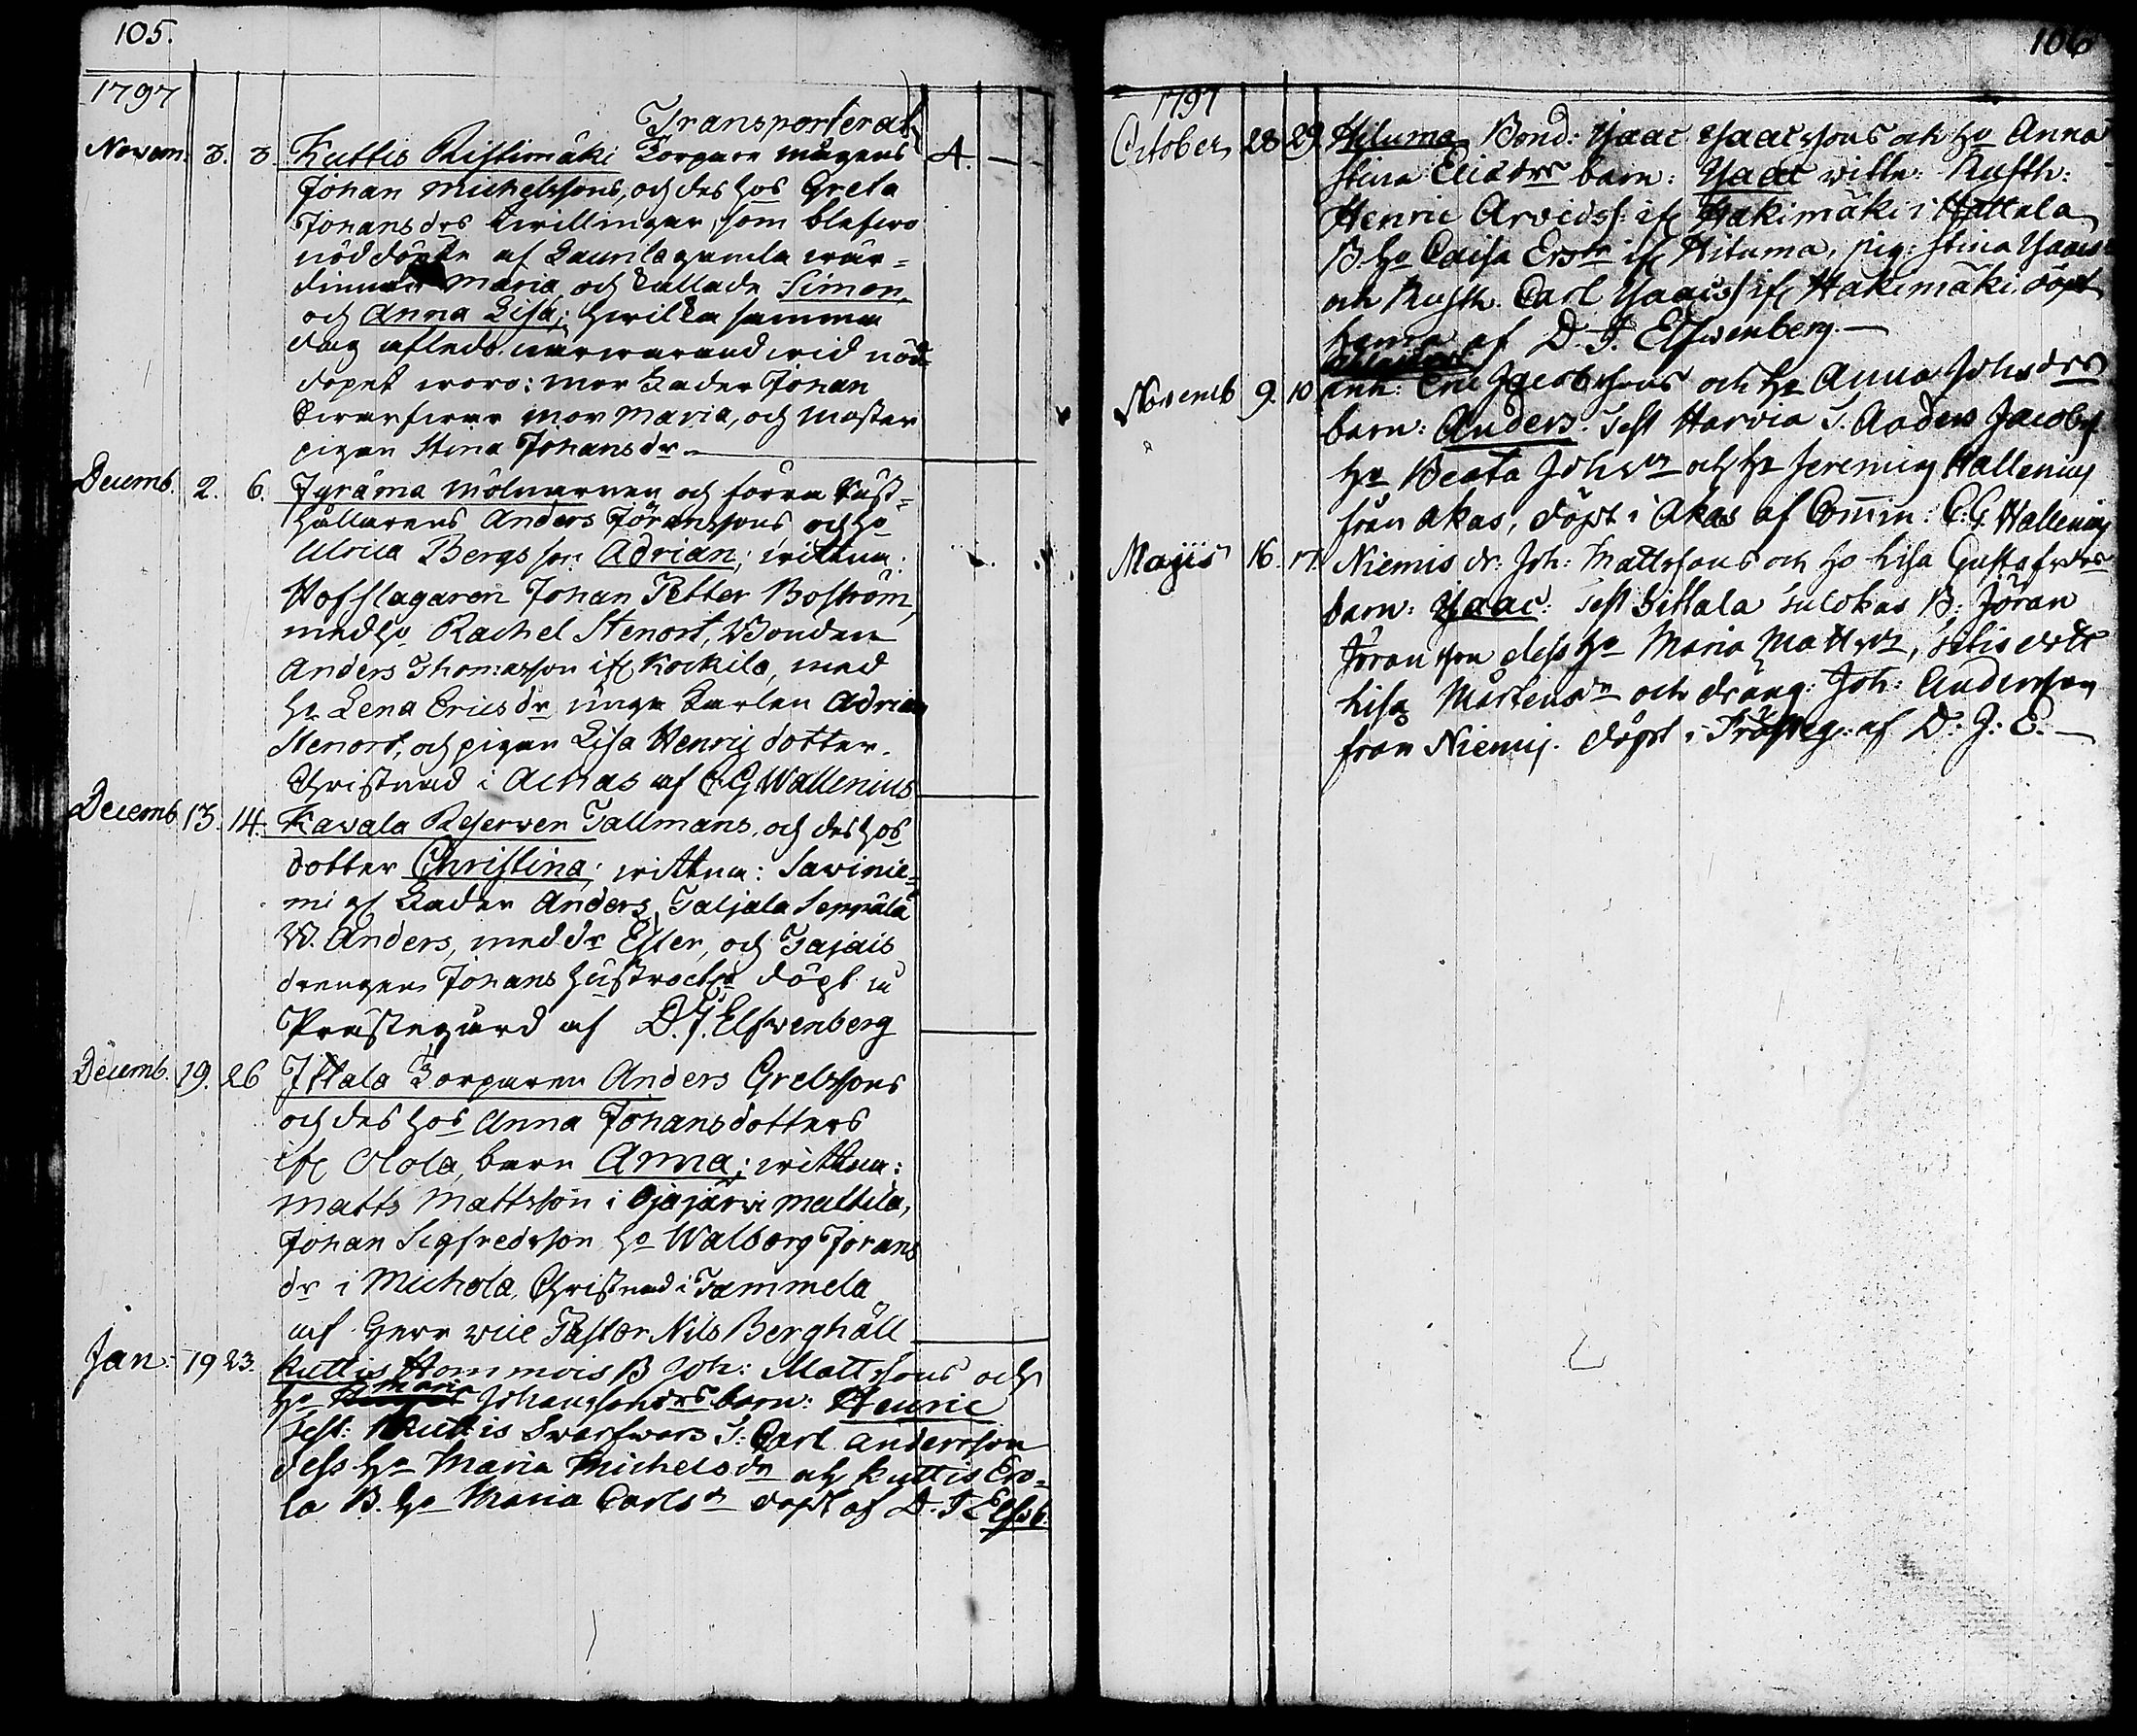 105.
1797
Transporterat
Novem. 8. 8. Kuttis Ristimäki Torpare mågens 4. —
Johan Michelssons, och des hos Greta
Johansdrs twillingar, som blefwo
nöddöpte af Launila gamla wär=
dinnan Maria och kallade Simon,
och Anna Lisa; hwilka samma
dag afledo. närwarand wid nöd=
döpet woro: Mor fader Johan
Swarfwar mor Maria, och moster
pigan Stina Johansdr.
Decemb. 2. 6. Jyräma mölnaren och förra Rust=
hållarens Anders Jöranssons och ho
Ulrica Bergs son Adrian; wittna:
Hofslagaren Johan Petter Boström,
med ho Rachel Stenort, Bonden
Anders Thomasson ifr Kockila, med
ho Lena Ericsdr unga karlen Adrian
Stenort, och pigan Lisa Henrics dotter.
Christnad i Achas af C G Wallenius
Decemb. 13. 14. Kavala Reserven Tallmans, och des hos
dotter Christina; wittna: Savinie=
mi gl fader Anders, Taljala Seppälä
W. Anders, med dr Ester, och Tajais
drengen Johans hustru döpt in
Prästegård af D. J. Elfwenberg
Decemb. 19. 26 Jttala Torparen Anders Grelssons
och des hos Anna Johansdotters
ifr Olola, barn Anna; wittna:
Matts Mattsson i Ojajärvi Mattila,
Johan Sigfredsson ho Walborg Jörans
dr i Michola, Christnad i Tammela
af Herr wice Pastor Nils Berghäll
Jan: 19 23. Kuttis Hommois B Joh: Mattssons och
ho Maria Johanssondrs barn: Henric
Test: Kuttis Swarfwars T: Carl Andersson
dess ho Maria Michelsdr och Kuttis Ero=
la B. ho Maria Carlsdr döpt af D. J Elfwb.
106
1797
October 28 29. Hituma Bond: Ysaac Ysaacssons och ho Anna
Stina Elia drs barn: Ysaac wittn: Rusth:
Henric Arvidss: ifr Hakimäki i Hattala
B. ho Caisa Ersdr ifr Hituma, pig: Stina Ysaacs
och Rusth. Carl Ysaacss ifr Hakimäki. döpt
hemma af D. J. Elfwenberg. —
Novemb 9. 10 Eric Jacobssons och ho Anna Johsdrs
barn: Anders. Test Harvia T. Anders Jacobss
ho Beata Johsdr och hr Jeremias Wallenius
från Akas, döpt i Akas af Comm: C: G Wallenius
Majis 16. 17. Niemis dr: Joh: Mattssons och ho Lisa Gustafsdrs
barn: Ysaac: Test Sittala Sulckas B: Jöran
Jöransson dess ho Maria Mattsdr,
Lisa Mårtensdr och dräng: Joh: Andersson
från Niemis. döpt i Prästeg: af D: J: E. —